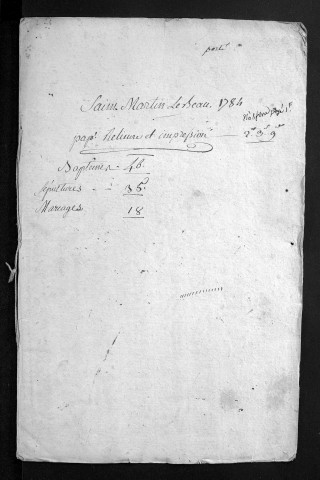 Saint Martin Le Beau. 1784
papr. Relieure et impression — 2# 3s 9d
Baptemes - 46.
Sépultures - - 35.
Mariages 18